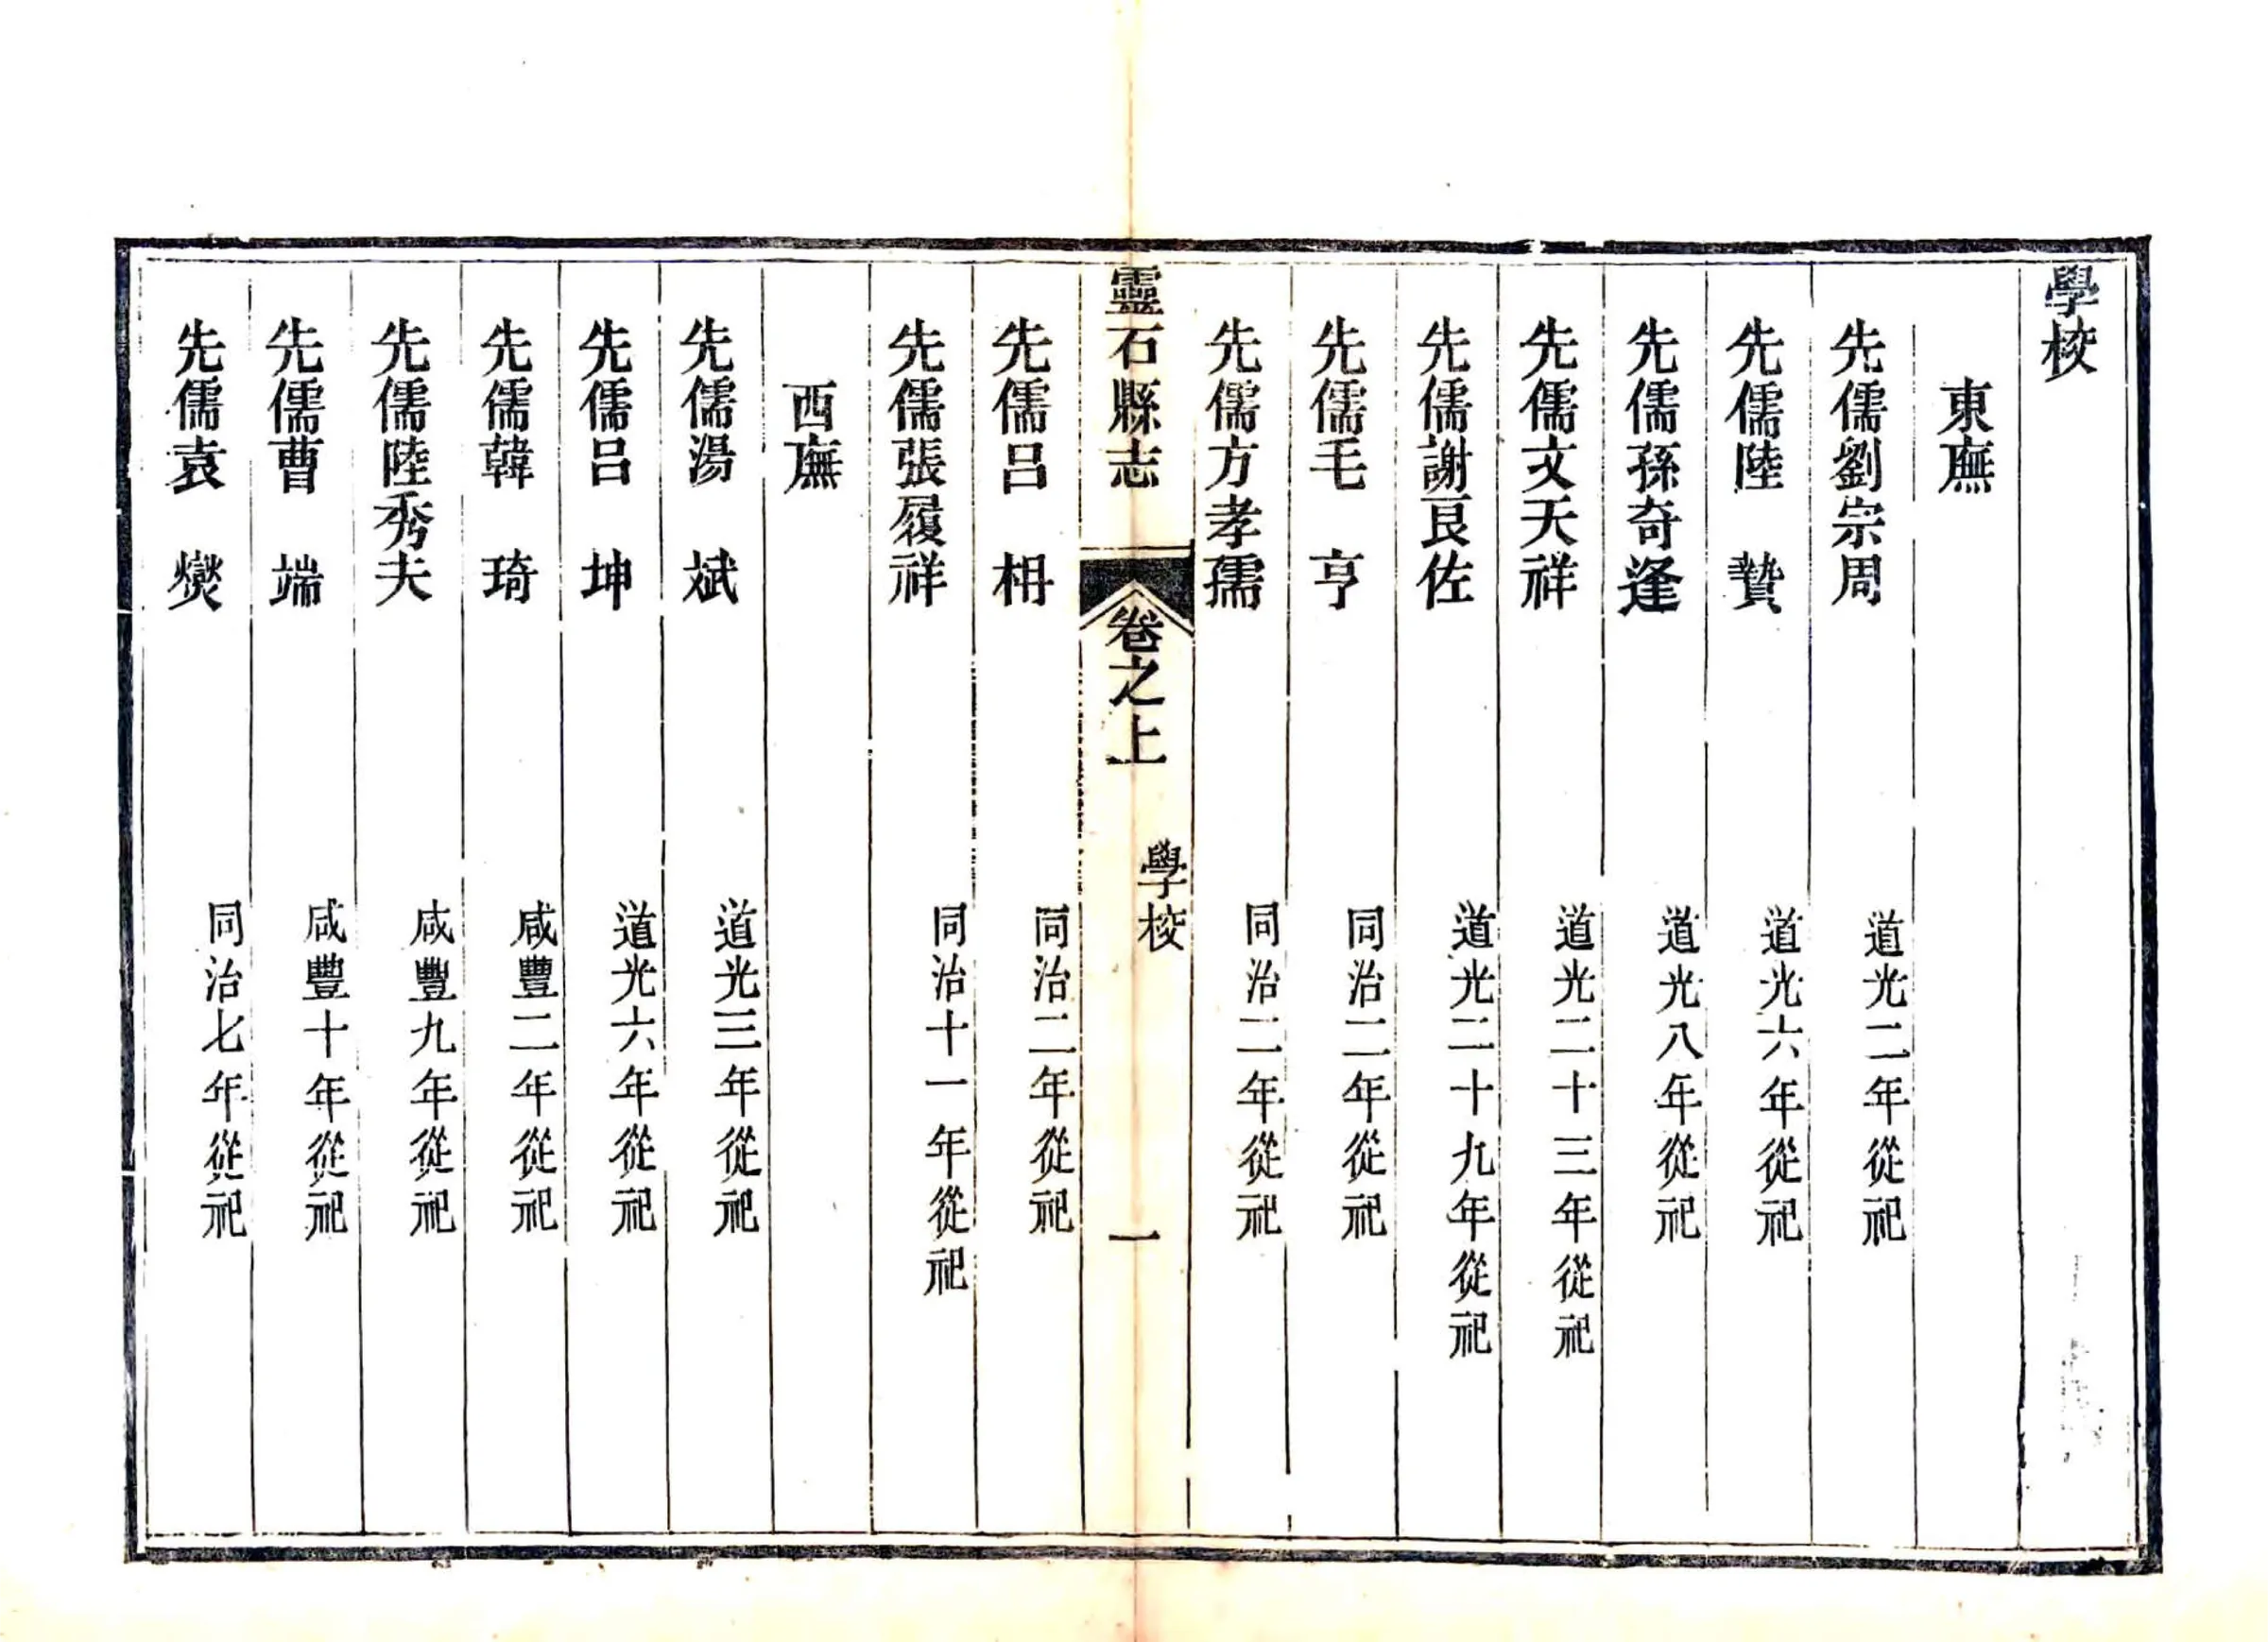 學校
東廡
先儒劉宗周 道光二年從祀
先儒陸贄 道光六年從祀
先儒孫奇逢 道光八年從祀
先儒文天祥 道光二十三年從祀
先儒謝良佐 道光二十九年從祀
先儒毛亨 同治二年從祀
先儒方孝孺 同治二年從祀
靈石縣志 卷之上 學校 一
先儒呂枏 同治二年從祀
先儒張履祥 同治十一年從祀
西廡
先儒湯斌 道光三年從祀
先儒呂坤 道光六年從祀
先儒韓琦 咸豐二年從祀
先儒陸秀夫 咸豐九年從祀
先儒曹端 咸豐十年從祀
先儒袁燮 同治七年從祀